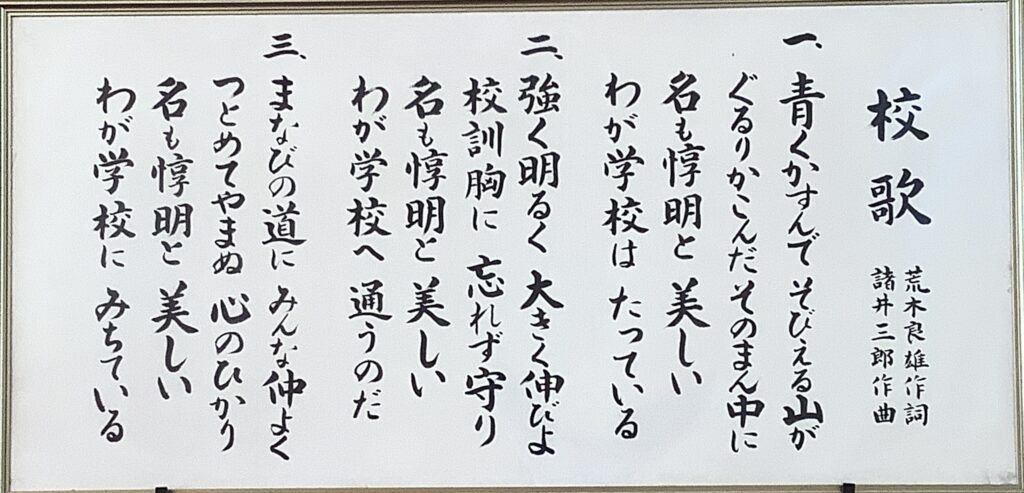 校歌
荒木良雄作詞
諸井三郎作曲
一、青くかすんで そびえる山が
ぐるりかこんだ そのまん中に
名も惇明と 美しい
わが学校は たっている
二、強く明るく 大きく伸びよ
校訓胸に 忘れず守り
名も惇明と 美しい
わが学校へ 通うのだ
三、まなびの道に みんな仲よく
つとめてやまぬ 心のひかり
名も惇明と 美しい
わが学校に みちている